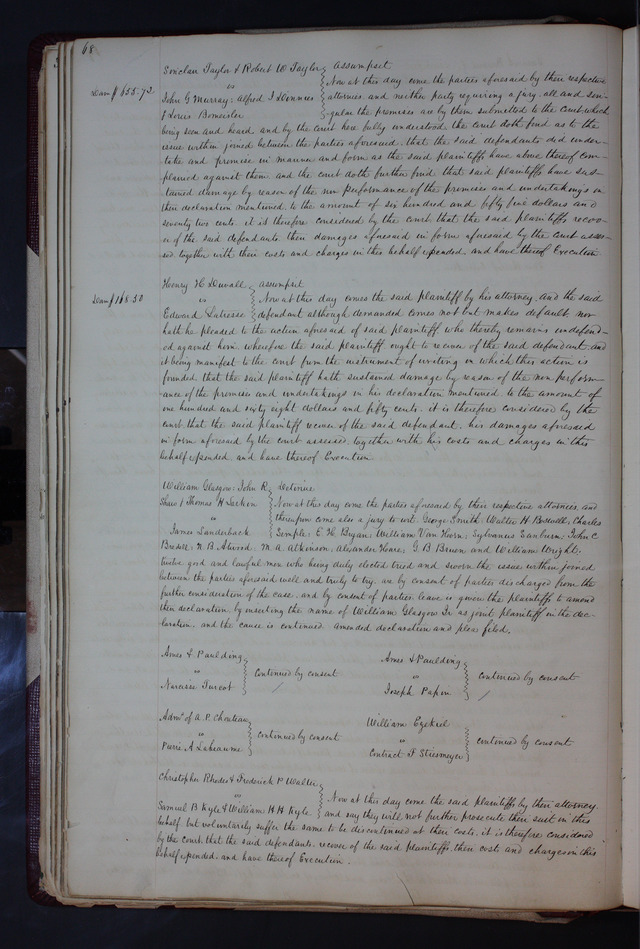 68
Sinclair Taylor & Robert W Taylor } Assumpsit
vs } Now at this day come the parties aforesaid by their respective
Dam $655.72 John G Murray; Alfred J attornies and neither party requiring a jury, all and sin-
& Louis } gular the premises are by them submitted to the court which
being seen and heard, and by the court here fully understood the court doth find as to the
issue within joined between the parties aforesaid, that the said defendants did under-
take and promise in manner and form as the said plaintiffs have above thereof com-
plained against them and the court doth further find that said plaintiffs have sus-
tained damage by reason of the non performance of the promises and undertakings in
their declaration mentioned, to the amount of six hundred and fifty five dollars and
seventy two cents. it is therefore considered by the court that the said plaintiffs recov-
er of the said defendants their damages aforesaid in form aforesaid by the court asses-
sed together with their costs and charges in this behalf expended, and have thereof Execution
Henry H Duvall } assumpsit
Dam $168.50 vs } Now at this day comes the said plaintiff by his attorney, and the said
Edward } defendant although demanded comes not but makes default nor
hath he pleaded to the action aforesaid of said plaintiff who thereby remains undefend-
ed against him wherefore the said plaintiff ought to recover of the said defendant and
it being manifest to the court from the instrument of writing on which this action is
founded that the said plaintiff hath sustained damage by reason of the non perform-
ance of the promises and undertakings in his declaration mentioned to the amount of
one hundred and sixty eight dollars and fifty cents. it is therefore considered by the
court, that the said plaintiff recover of the said defendant, his damages aforesaid
in form aforesaid by the court assessed, together with his costs and charges in this
behalf expended, and have thereof Execution
William Glasgow; John R. } Detinue
Shaw & Thomas H Larkin } Now at this day come the parties aforesaid by their respective attornies, and
vs } thereupon come also a jury to wit. George Smith; Walter H. Charles
James } Semple; E H Bryan; William Van Hoorn; Sylvanus John C
N. B. Atwood, M A Atkinson, Alexander G B and William Wright.
twelve good and lawful men who being duly elected tried and sworn the issues within joined
between the parties aforesaid well and truly to try, are by consent of parties discharged from the
further consideration of the case, and by consent of parties leave is given the plaintiffs to amend
their declaration, by inserting the name of William Glasgow Jr as joint plaintiff in the dec-
laration, and the cause is continued. amended declaration and pleas filed.
Ames & Paulding } continued by consent
vs
Narcisse
Ames & Paulding } continued by consent
vs
Joseph Papin
Admr of A. P. Chouteau } continued by consent
vs
Pierre A Labeaume
William Ezekiel } continued by consent
vs
F
Christopher Rhodes & Frederick P Walter }
vs } Now at this day come the said plaintiffs by their attorney.
Samuel B Kyle & William H H Kyle } and say they will not further prosecute their suit in this
behalf but voluntarily suffer the same to be discontinued at their costs, it is therefore considered
by the court, that the said defendants, recover of the said plaintiffs, their costs and charges in this
behalf expended, and have thereof Execution.